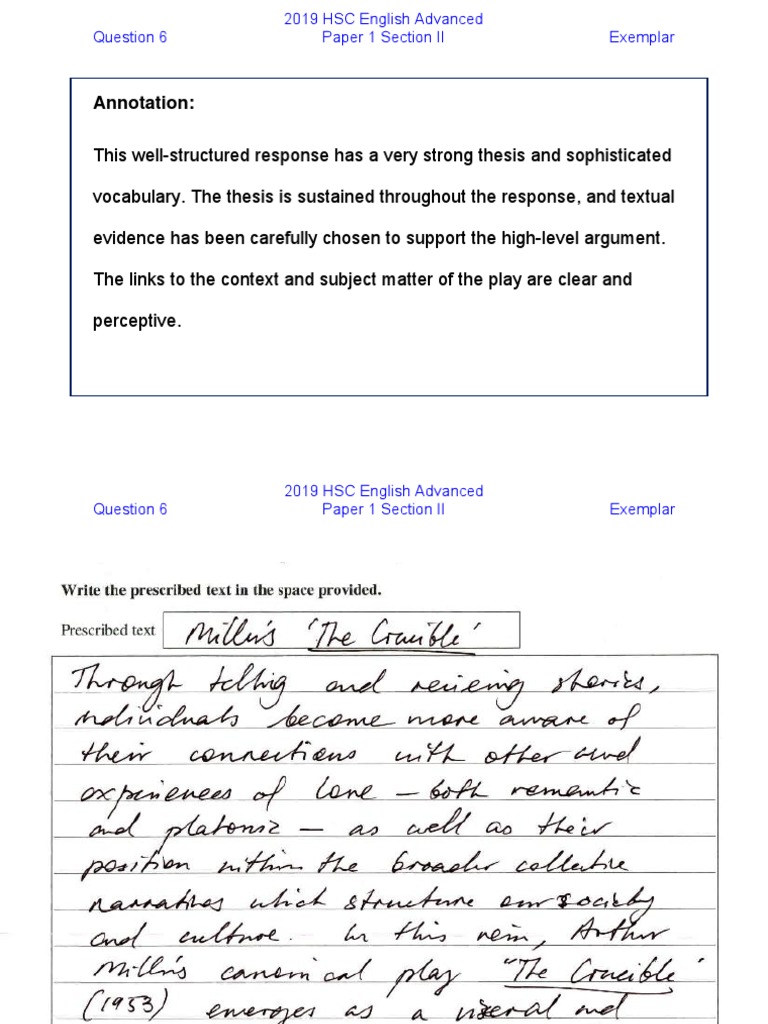 2019 HSC English Advanced
Question 6 Paper 1 Section II Exemplar
Annotation:
This well-structured response has a very strong thesis and sophisticated
vocabulary. The thesis is sustained throughout the response, and textual
evidence has been carefully chosen to support the high-level argument.
The links to the context and subject matter of the play are clear and
perceptive.
2019 HSC English Advanced
Question 6 Paper 1 Section II Exemplar
Write the prescribed text in the space provided.
Prescribed text Miller's 'The Crucible'
Through telling and receiving stories,
individuals become more aware of
their connections with other and
experiences of love – both romantic
and platonic – as well as their
position within the broader collective
narratives which structure our society
and culture. In this vein, Arthur
Miller's canonical play "The Crucible'
(1953) emerges as a visceral and